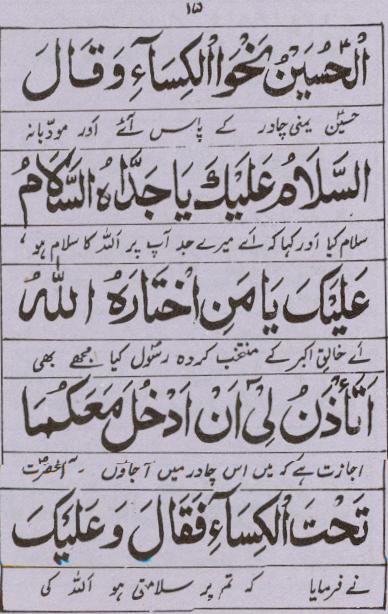 ۱۵
الْحُسَيْنُ نَحْوَالْكِسَآءِ وَقَالَ
حسینؑ یمنی چادر کے پاس آئے اور مودّبانہ
اَلسَّلَامُ عَلَيْكَ يَا جَدَّاهُ السَّلَامُ
سلام کیا اور کہا کہ اے میرے جد آپ پر اللہ کا سلام ہو ،
عَلَيْكَ يَا مَنِ اخْتَارَهُ اللهُ
اے خالق اکبر کے منتخب کردہ رسول کیا مجھے بھی
اَتَأْذَنُ لِيْ اَنْ اَدْخُلَ مَعَكُمَا
اجازت ہے کہ میں اس چادر میں آجاؤں ۔ آنحضرتؐ
تَحْتَ الْكِسَآءِ فَقَالَ وَعَلَيْكَ
نے فرمایا کہ تم پر سلامتی ہو اللہ کی